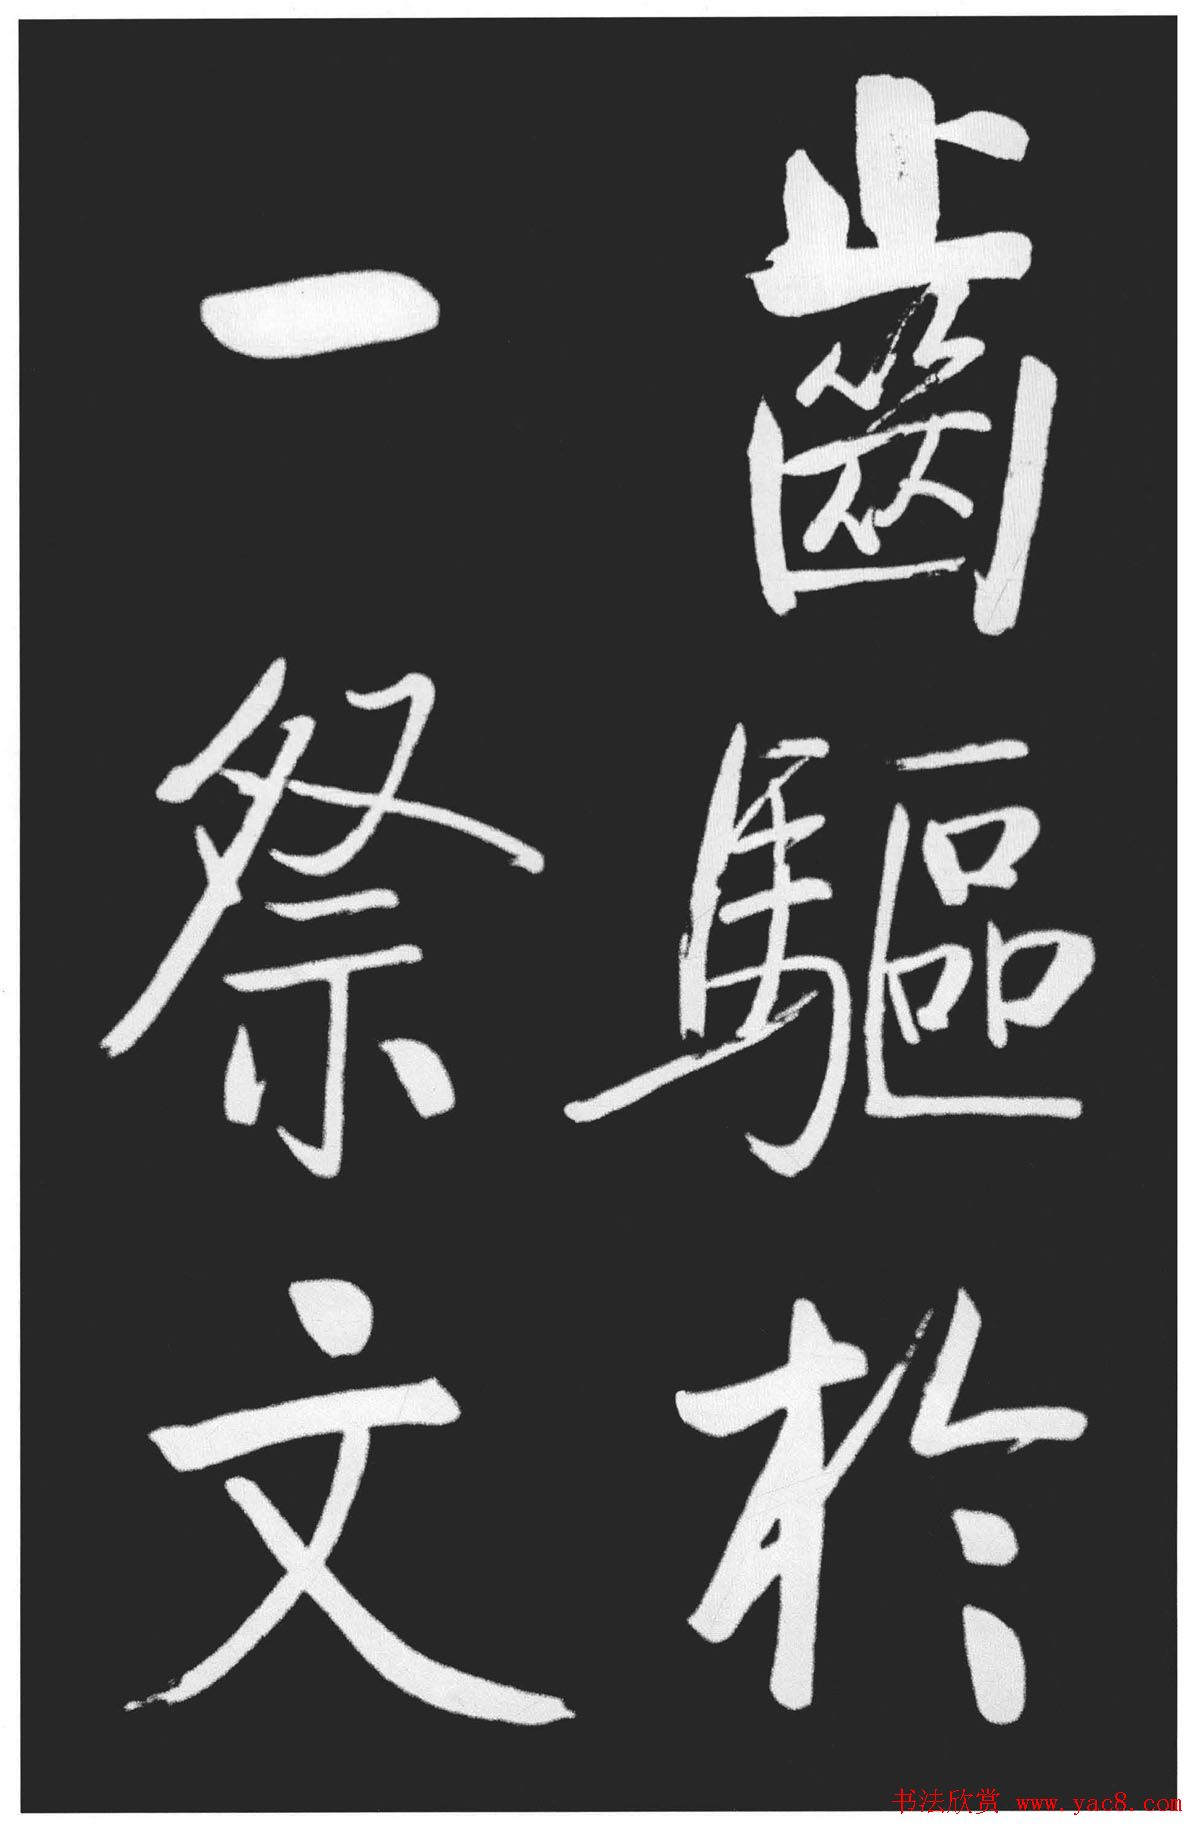 齒驅於
一祭文
书法欣赏 www.yac8.com